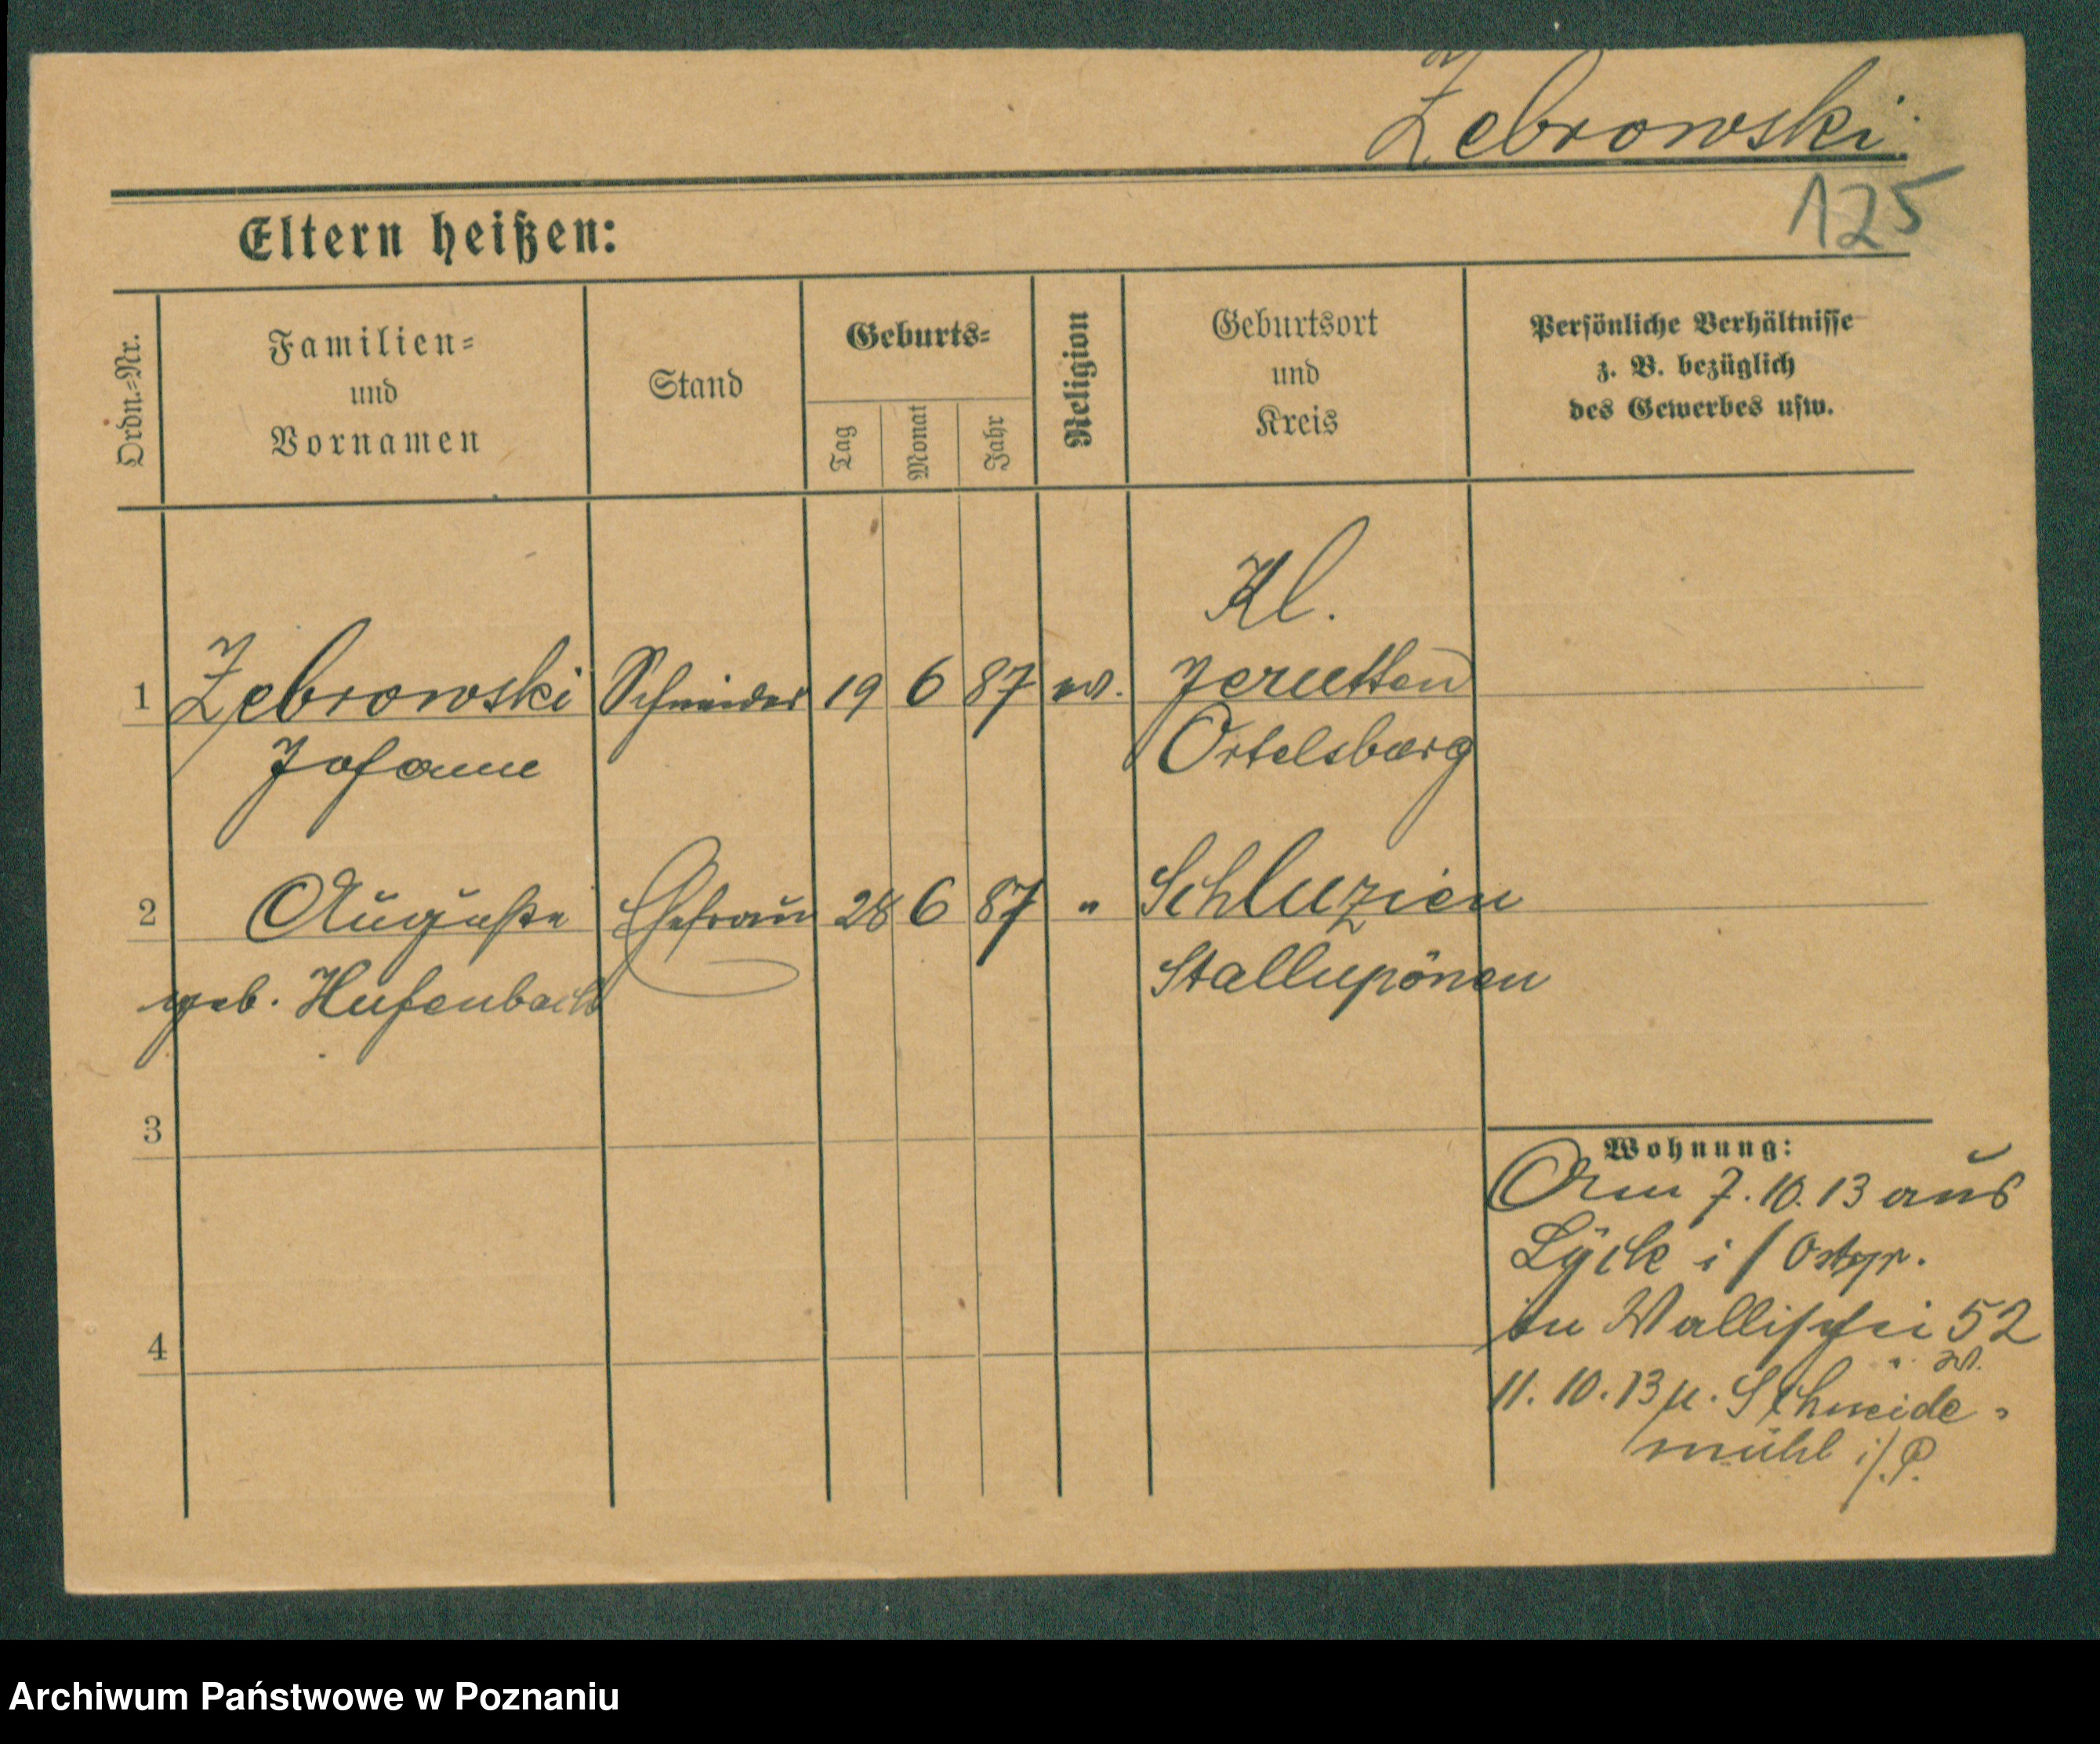 Zebrowski
125
Eltern heißen:
Ordn.-Nr.
Familien-
und
Vornamen
Stand
Geburts-
Tag
Monat
Jahr
Religion
Geburtsort
und
Kreis
Persönliche Verhältnisse
z. B. bezüglich
des Gewerbes usw.
Kl.
1 Zebrowski Schneider 19 6 87 ev. Jerutten
Johann Ortelsburg
2 Auguste Ehefrau 28 6 87 " Schluzien
geb. Hufenbach Stallupönen
3
4
Wohnung:
Am 7. 10. 13 aus
Lyck i/Ostpr.
in Wallischei 52
11. 10. 13 n. Schneide-
mühl i/.P.
Archiwum Państwowe w Poznaniu